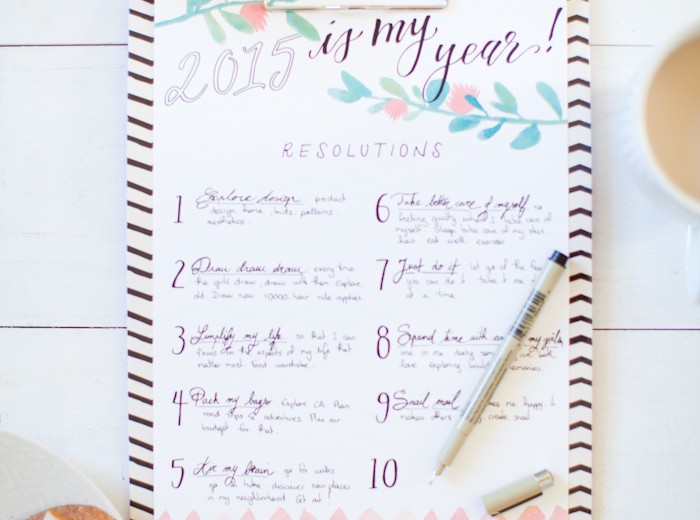 2015 is my year!
RESOLUTIONS
1 Explore design product
design home, kids, patterns,
aesthetics.
2 Draw draw draw every time
the girls draw, draw with them explore
10,000 hour rule applies
3 Simplify my life so that I can
focus on the aspects of my life that
matter most
4 Pack my bags Explore CA. Plan
road trips & adventures. Plan our
budget for that.
5 my brain go for walks
go & hike discover new places
in my neighborhood. Get out!
6 Take better care of myself no
feeling guilty when I take care of
myself. Sleep, take care of my skin
hair eat well exercise
7 Just do it let go of the
you can do it
at a time
8 Spend time with my girls
one on one
love exploring
9 Snail mail me happy it
makes others create snail
10